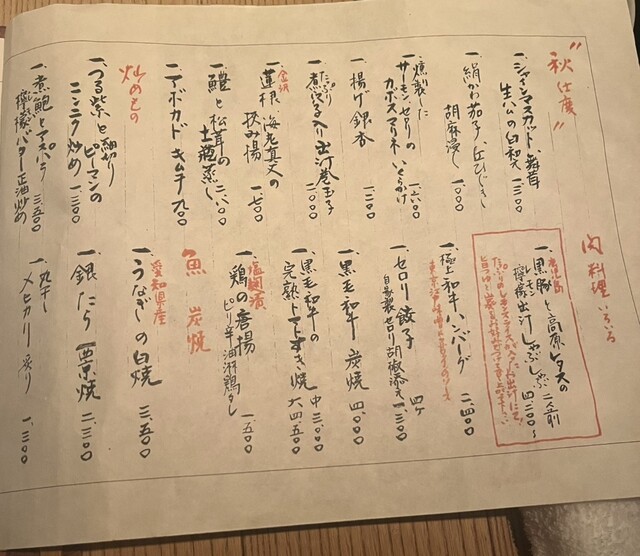 "秋仕度"
一、シャインマスカット、舞茸
生ハムの白和え 一、三〇〇
一、絹かわ茄子、丘ひじき
胡麻浸し 一、〇〇〇
一、燻製した
サーモン、セロリの
カボスマリネ いくらがけ 一、六〇〇
一、揚げ銀杏 一、二〇〇
一、たっぷり
煮穴子入り出汁巻玉子 二、〇〇〇
金沢
一、蓮根、海老真丈の
挟み揚 一、七〇〇
一、鱧と松茸の
土瓶蒸し 二、八〇〇
一、アボカドキムチ 九〇〇
炒めもの
一、つる紫と細切り
ピーマンの
ニンニク炒め 一、三〇〇
一、煮鮑とアスパラ
檸檬バター正油炒め 三、五〇〇
肉料理いろいろ
鹿児島
一、黒豚と高原レタスの
檸檬出汁しゃぶしゃぶ 二人前
レモン
四、二〇〇〜
一、極上和牛ハンバーグ 二、四〇〇
一、セロリ餃子 四ヶ
自家製セロリ胡椒添え 一、三〇〇
一、黒毛和牛 炭焼 四、〇〇〇
一、黒毛和牛の
完熟トマトすき焼 中 三、〇〇〇
大 四、五〇〇
塩麹漬
一、鶏の唐揚
ピリ辛油淋鶏だし 一、五〇〇
魚 炭焼
愛知県産
一、うなぎの白焼 三、五〇〇
一、銀だら西京焼 二、三〇〇
一、丸干し
メヒカリ 炙り 一、三〇〇